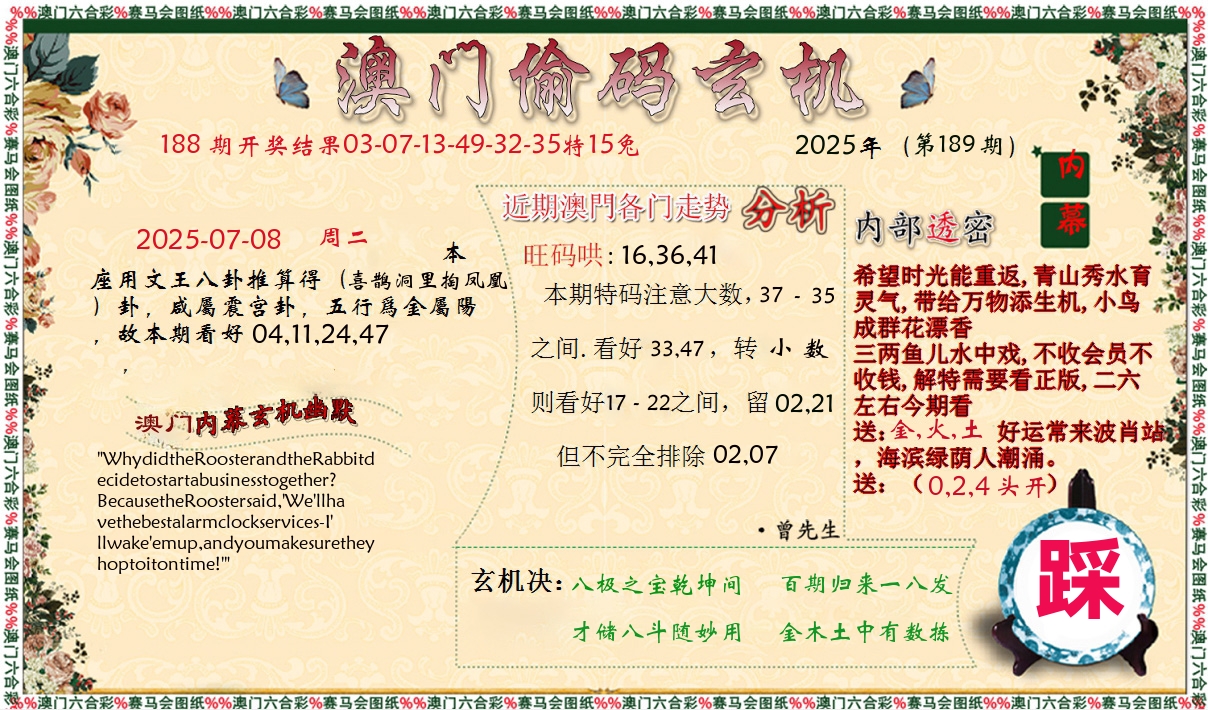 %%澳门六合彩%赛马会图纸%%澳门六合彩%赛马会图纸%%澳门六合彩%赛马会图纸%%澳门六合彩%赛马会图纸%%澳门六合彩%赛马会图纸%%澳门六合彩%赛马会图纸%%
澳门偷码玄机
188 期开奖结果03-07-13-49-32-35特15兔
2025年（第189 期）
内
幕
2025-07-08 周二
本
座用文王八卦推算得（喜鹊洞里掏凤凰
）卦，咸屬震宫卦，五行爲金屬陽
，故本期看好 04,11,24,47
，
澳门内幕玄机幽默
"WhydidtheRoosterandtheRabbitd
ecidetostartabusinesstogether?
BecausetheRoostersaid,'We'llha
vethebestalarmclockservices-I'
llwake'emup,andyoumakesurethey
hoptoitontime!'"
近期澳門各门走势 分析
旺码哄: 16,36,41
本期特码注意大数, 37 - 35
之间. 看好 33,47 ，转 小 数
则看好17 - 22之间，留 02,21
但不完全排除 02,07
·曾先生
内部透密
希望时光能重返, 青山秀水育
灵气, 带给万物添生机, 小鸟
成群花漂香
三两鱼儿水中戏, 不收会员不
收钱, 解特需要看正版, 二六
左右今期看
送: 金, 火, 土 好运常来波肖站
，海滨绿荫人潮涌。
送: （0,2,4 头开）
玄机决: 八极之宝乾坤间 百期归来一八发
才储八斗随妙用 金木土中有数拣
踩
%%澳门六合彩%赛马会图纸%%澳门六合彩%赛马会图纸%%澳门六合彩%赛马会图纸%%澳门六合彩%赛马会图纸%%澳门六合彩%赛马会图纸%%澳门六合彩%赛马会图纸%%